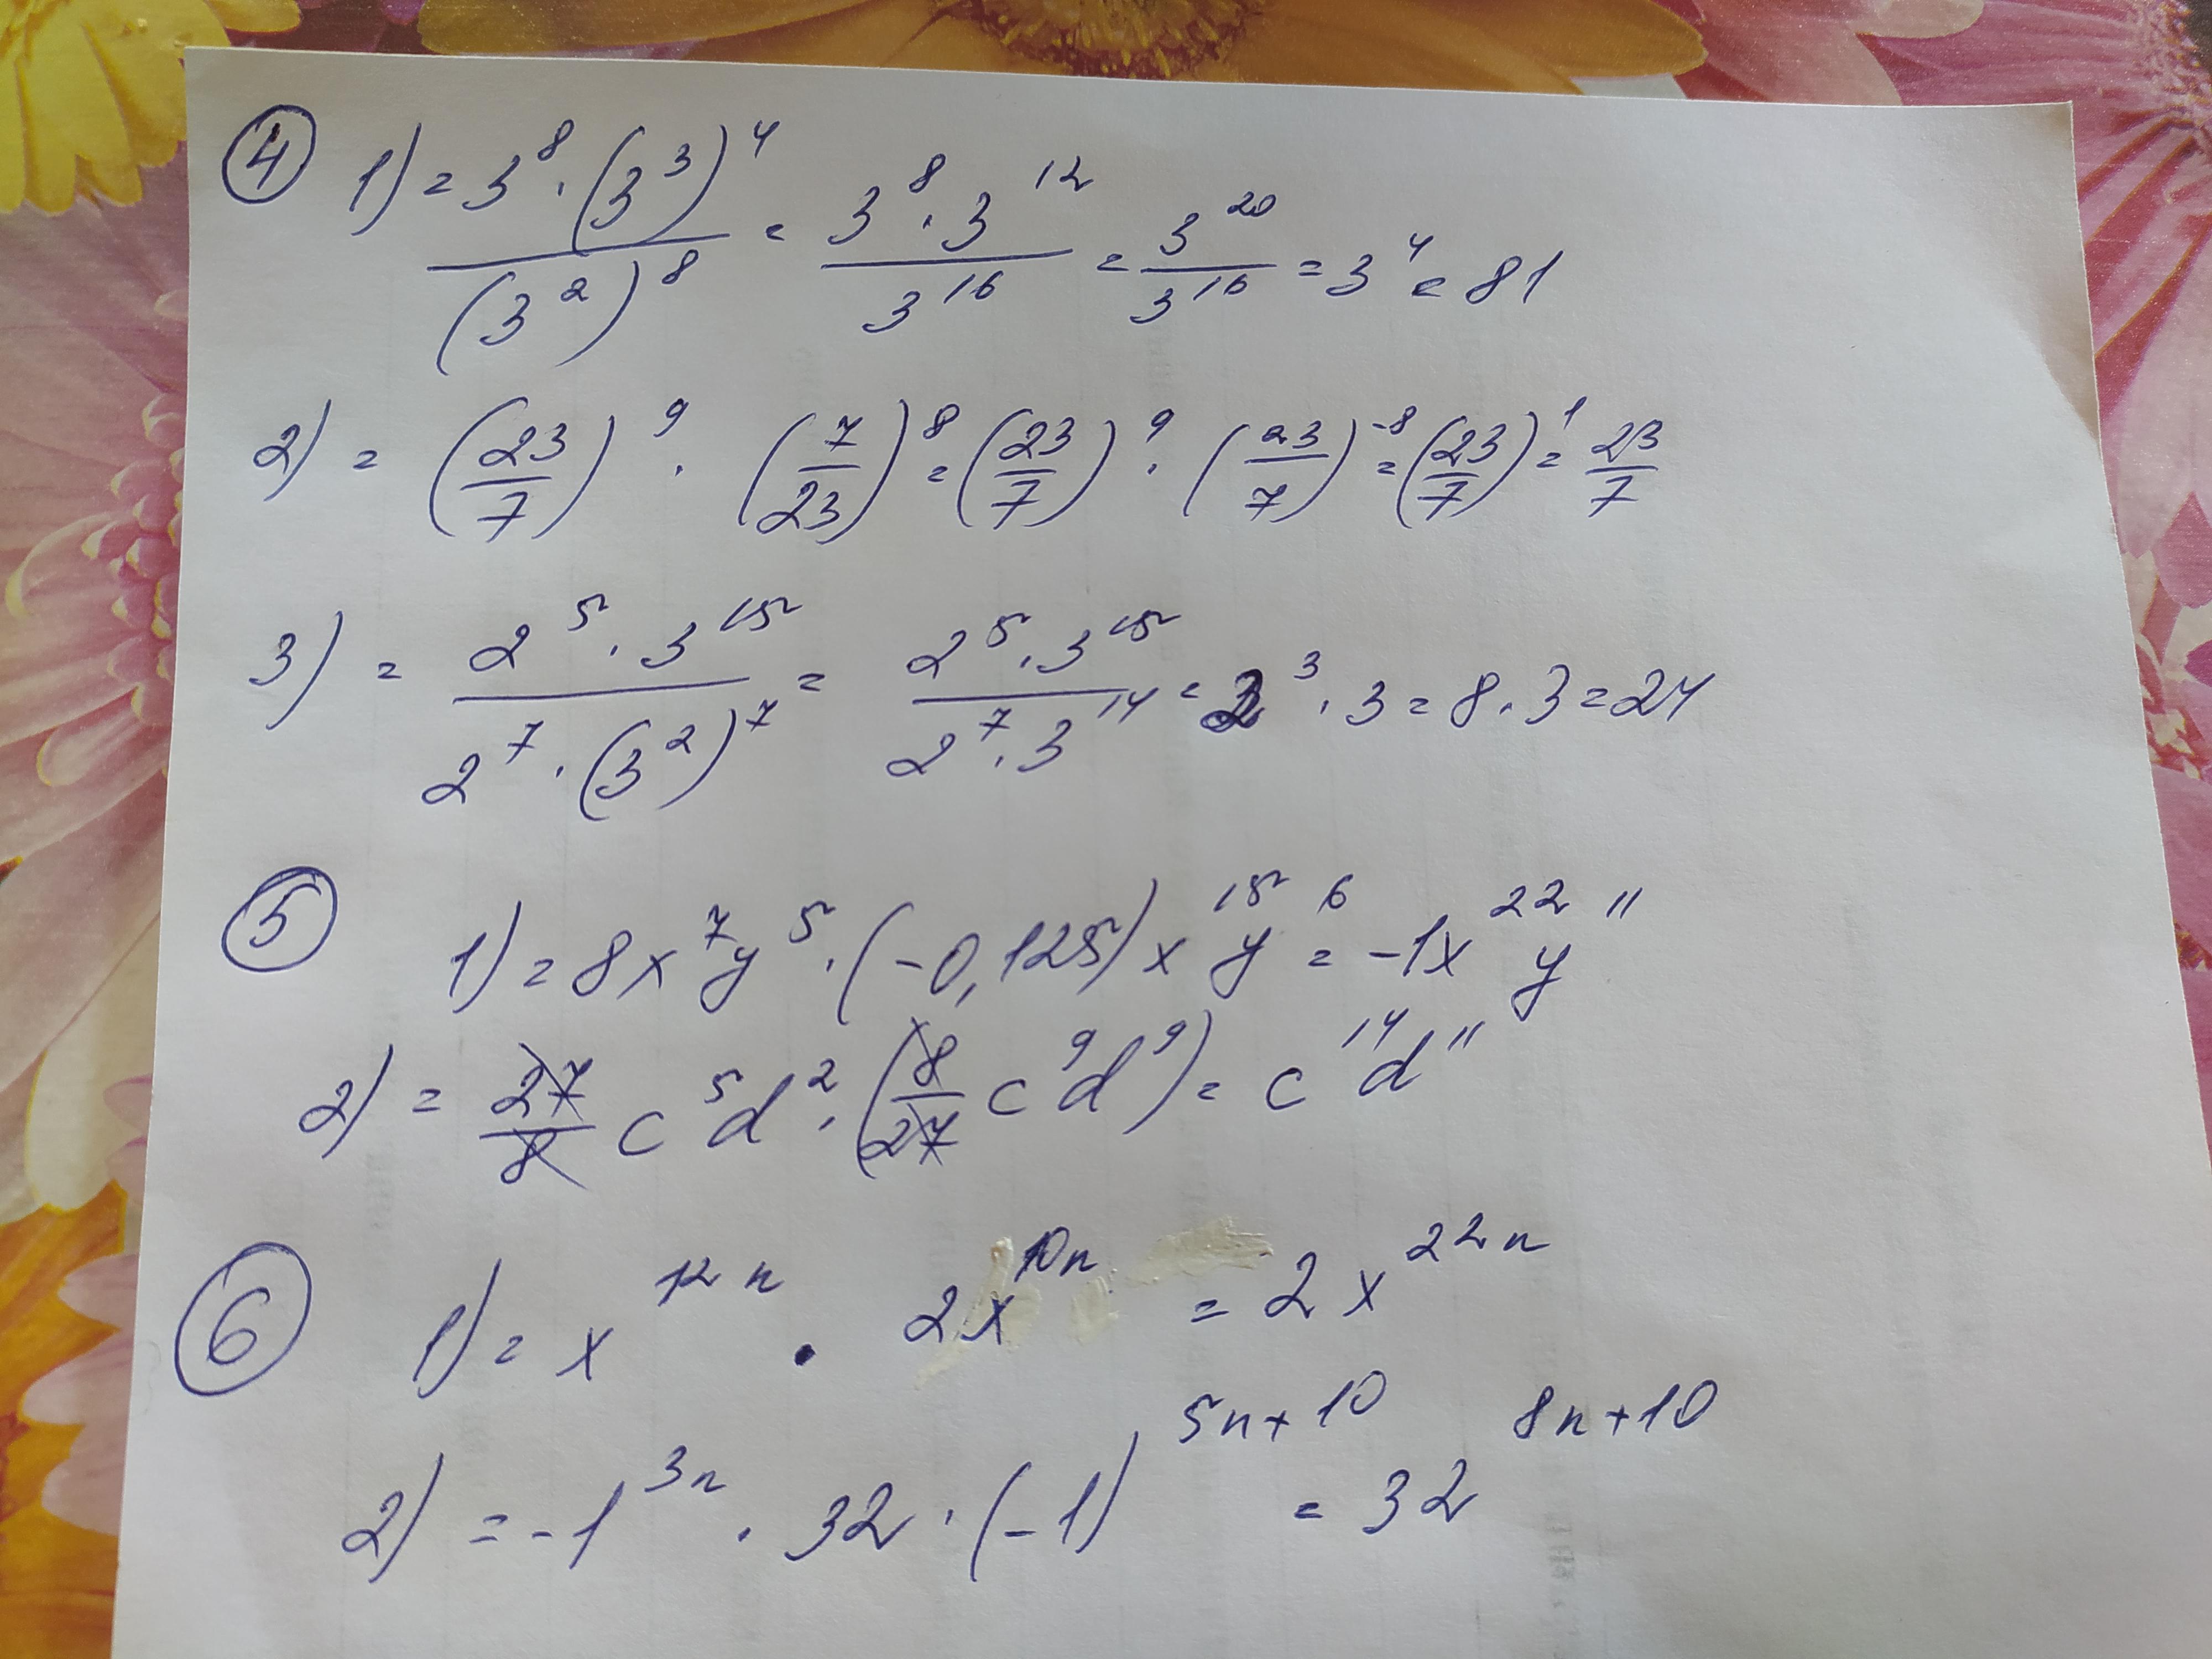 ④ 1) = 3⁸ · (3³)⁴ / (3²)⁸ = 3⁸ · 3¹² / 3¹⁶ = 3²⁰ / 3¹⁶ = 3⁴ = 81
2) = (23/7)⁹ · (7/23)⁸ = (23/7)⁹ · (23/7)⁻⁸ = (23/7)¹ = 23/7
3) = 2⁵ · 3¹⁵ / 2⁷ · (3²)⁷ = 2⁵ · 3¹⁵ / 2⁷ · 3¹⁴ = 2³ · 3 = 8 · 3 = 24
⑤ 1) = 8x⁷y⁵ · (-0,125)x¹⁵y⁶ = -1x²²y¹¹
2) = 27/8 c⁵d² · (8/27 c⁹d⁹) = c¹⁴d¹¹
⑥ 1) = x¹²ⁿ · 2x¹⁰ⁿ = 2x²²ⁿ
2) = -1³ⁿ · 32 · (-1)⁵ⁿ⁺¹⁰ = 32⁸ⁿ⁺¹⁰